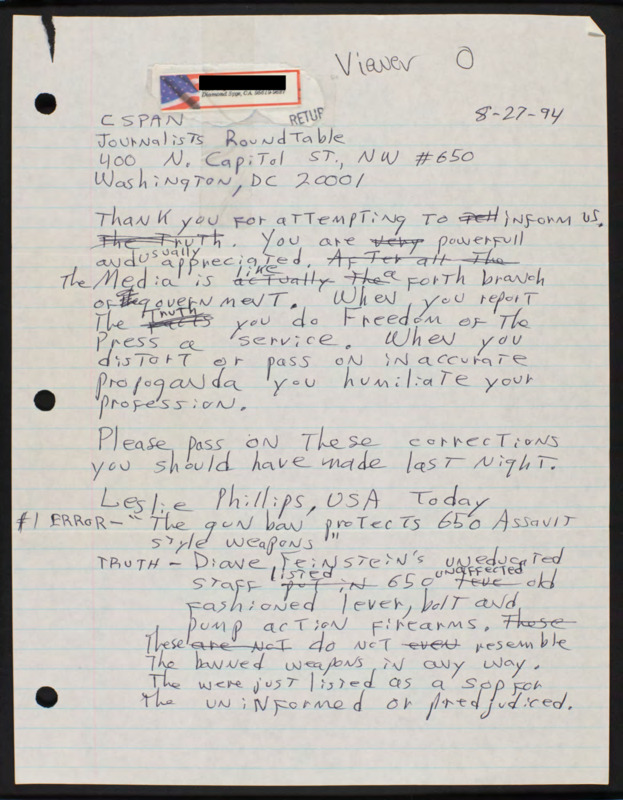 Viewer O
Diamond Bar, CA
RETUR
8-27-94
CSPAN
Journalists RoundTable
400 N. Capitol ST., NW #650
Washington, DC 20001
Thank you for attempting to tell inform us.
The Truth. You are very powerfull
and usually appreciated. After all The
The Media is actually like The a forth branch
of government. When you report
The facts Truth you do Freedom of The
Press a service. When you
distort or pass on inaccurate
propoganda you humiliate your
profession.
Please pass on These corrections
you should have made last night.
Leslie Phillips, USA Today
#1 ERROR - "The gun ban protects 650 Assault
style weapons"
TRUTH - Diane Feinstein's uneducated
staff put in listed 650 unaffected old
fashioned lever, bolt and
pump action firearms. These
These are not do not even resemble
The banned weapons in any way.
The were just listed as a sop for
The uninformed or predjudiced.